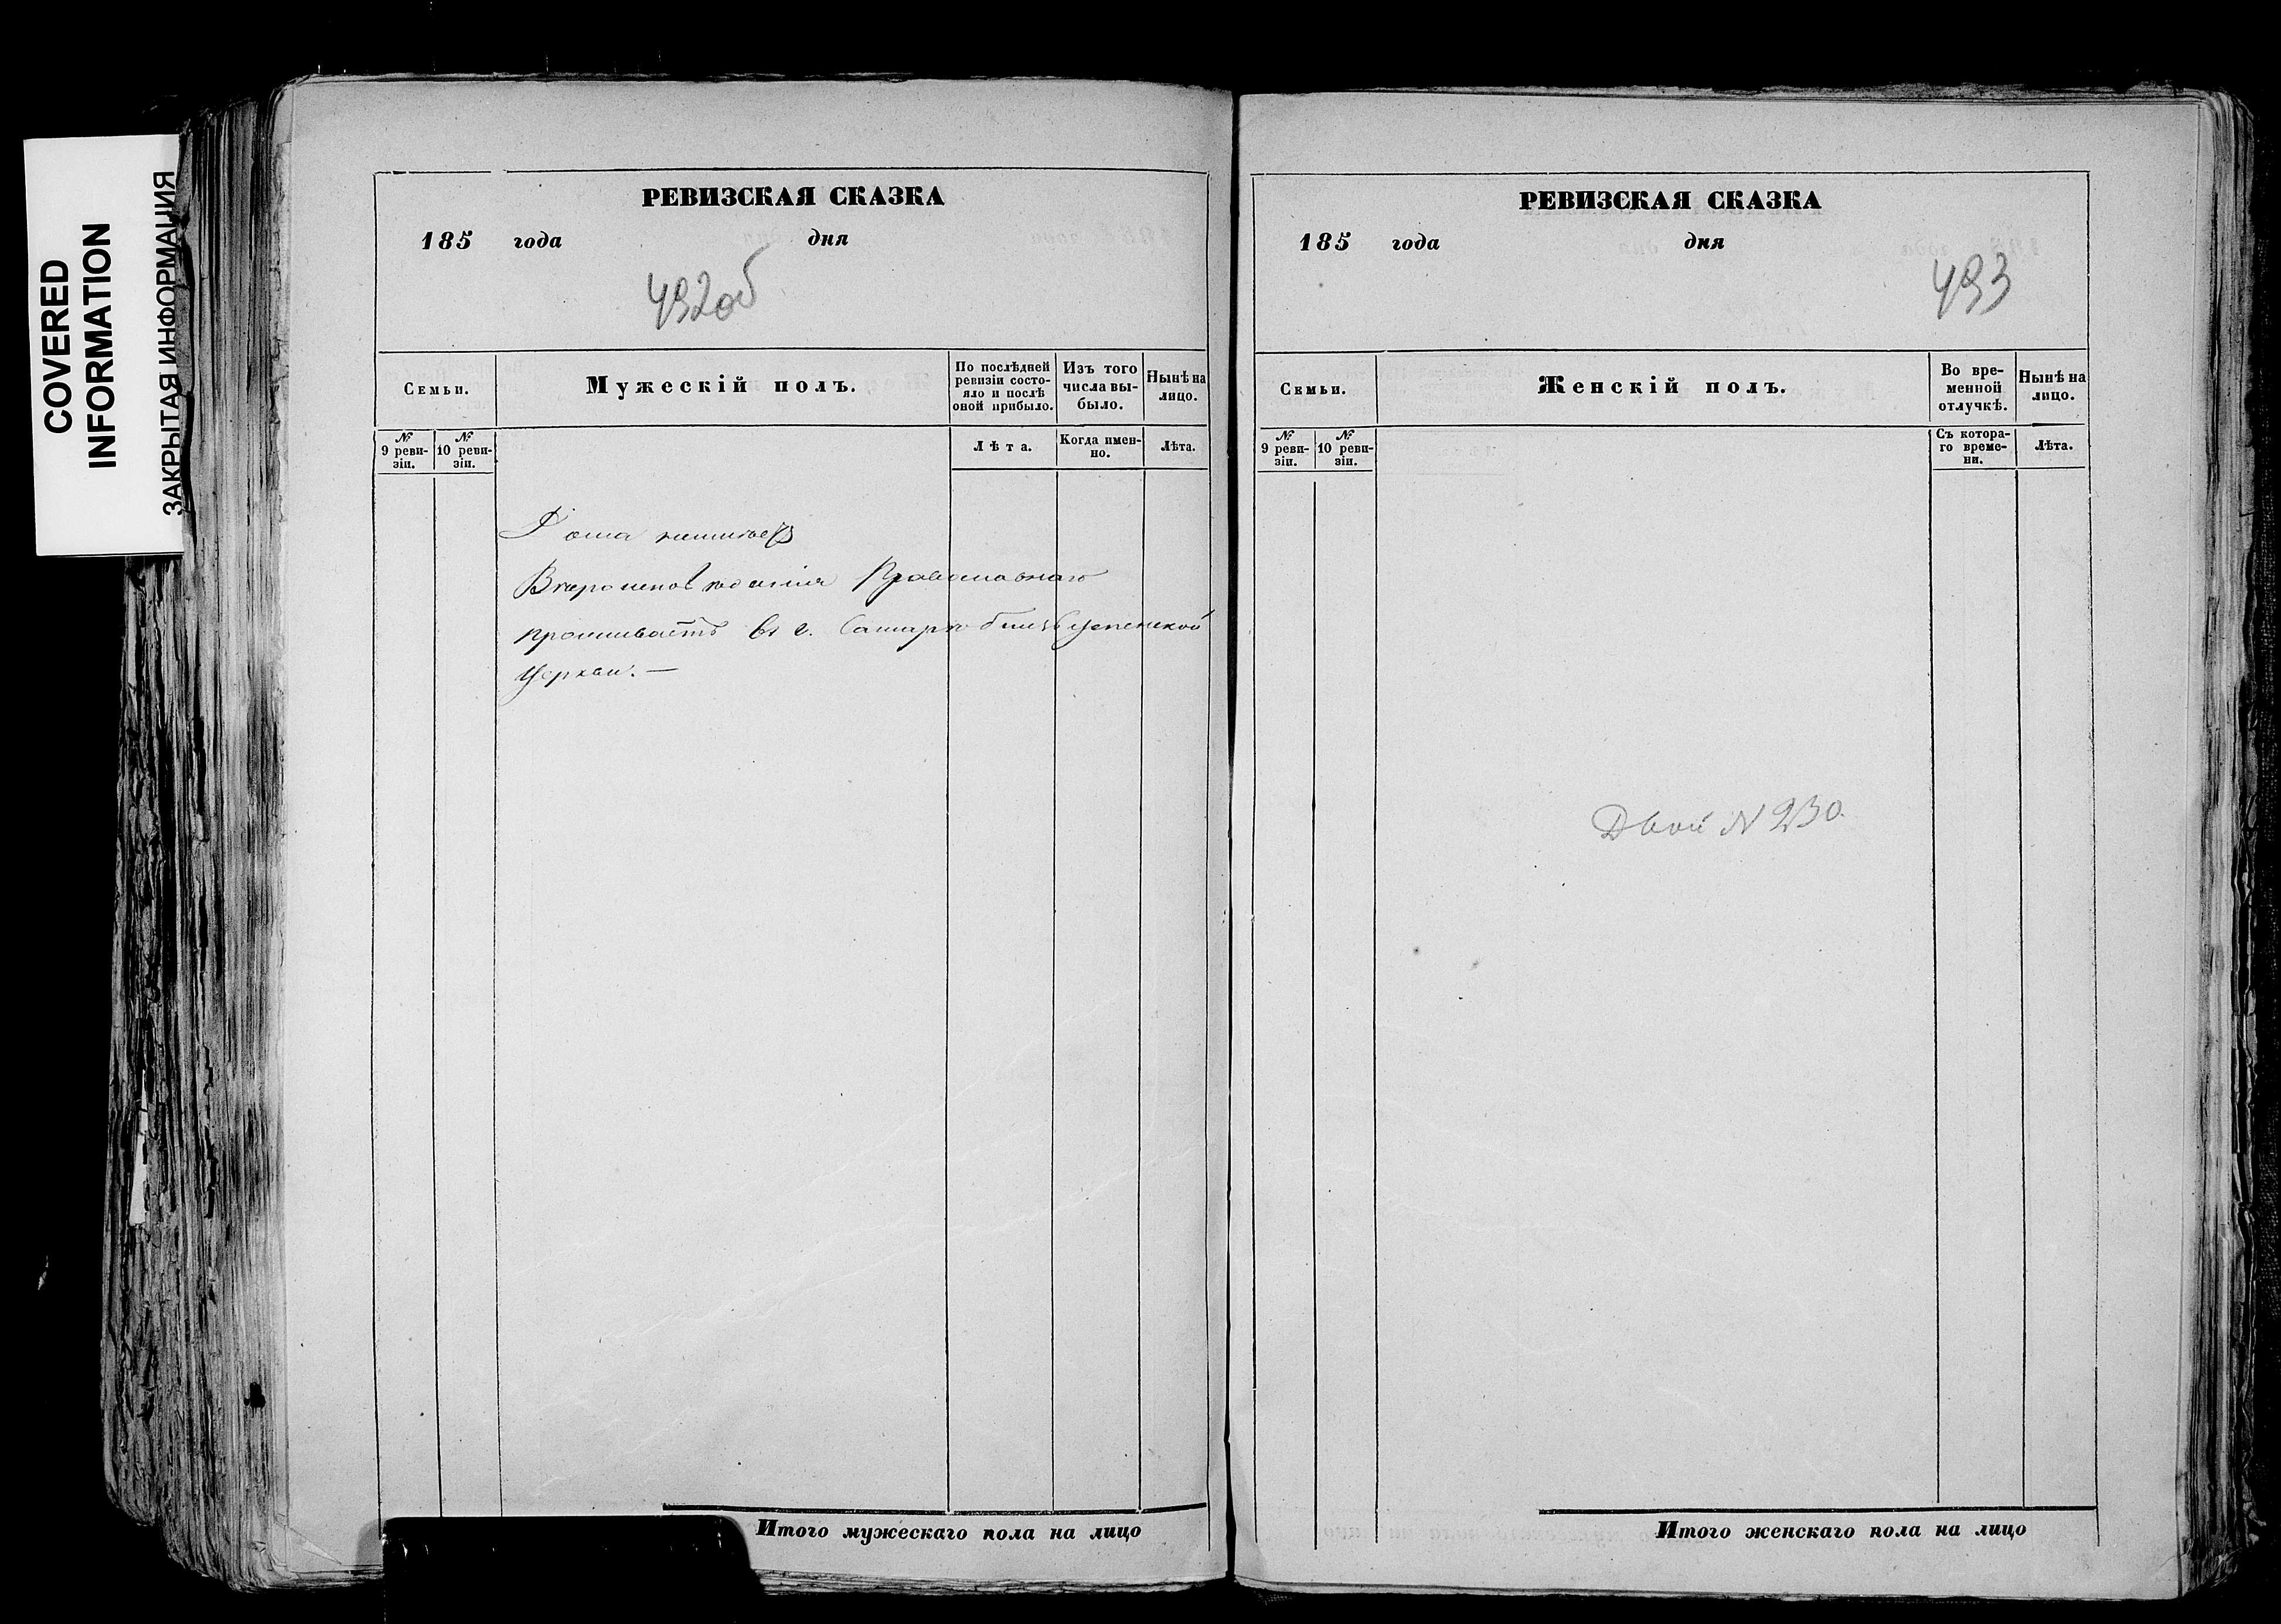 COVERED
INFORMATION
ЗАКРЫТАЯ ИНФОРМАЦИЯ
РЕВИЗСКАЯ СКАЗКА
185 года дня
492об
Семьи.
Мужескій полъ.
По послѣдней
ревизіи состо-
яло и послѣ
оной прибыло.
Изъ того
числа вы-
было.
Нынѣ на
лицо.
№
9 реви-
зіи.
№
10 реви-
зіи.
Лѣта.
Когда имен-
но.
Лѣта.
Вѣроисповѣданія Православнаго
проживаетъ въ г. Самарѣ близь Успенской
Церкви. —
Итого мужескаго пола на лицо
РЕВИЗСКАЯ СКАЗКА
185 года дня
493
Семьи.
Женскій полъ.
Во вре-
менной
отлучкѣ.
Нынѣ на
лицо.
№
9 реви-
зіи.
№
10 реви-
зіи.
Съ котора-
го време-
ни.
Лѣта.
N 230.
Итого женскаго пола на лицо